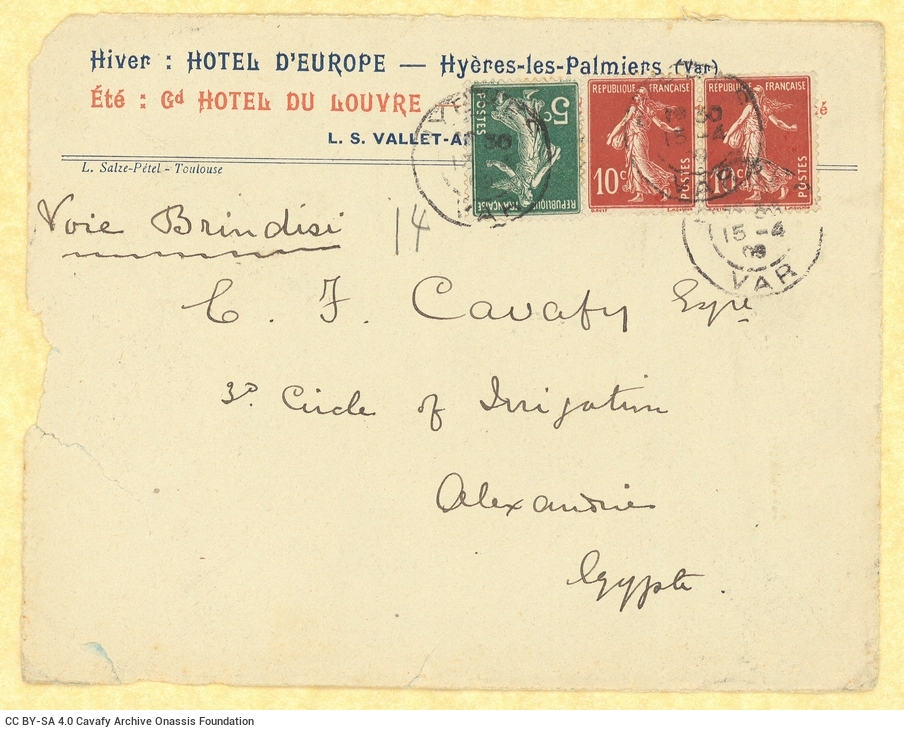 Hiver : HOTEL D'EUROPE — Hyères-les-Palmiers (Var)
Été : Gd HOTEL DU LOUVRE
L. S. VALLET-A
L. Salze-Pétel - Toulouse
5c POSTES REPUBLIQUE FRANÇAISE
REPUBLIQUE FRANÇAISE 10c POSTES
REPUBLIQUE FRANÇAISE 10c POSTES
15 -4
VAR
Voie Brindisi
14
C. F. Cavafy Esqre
3º Circle of Irrigation
Alexandrie
Egypte.
CC BY-SA 4.0 Cavafy Archive Onassis Foundation